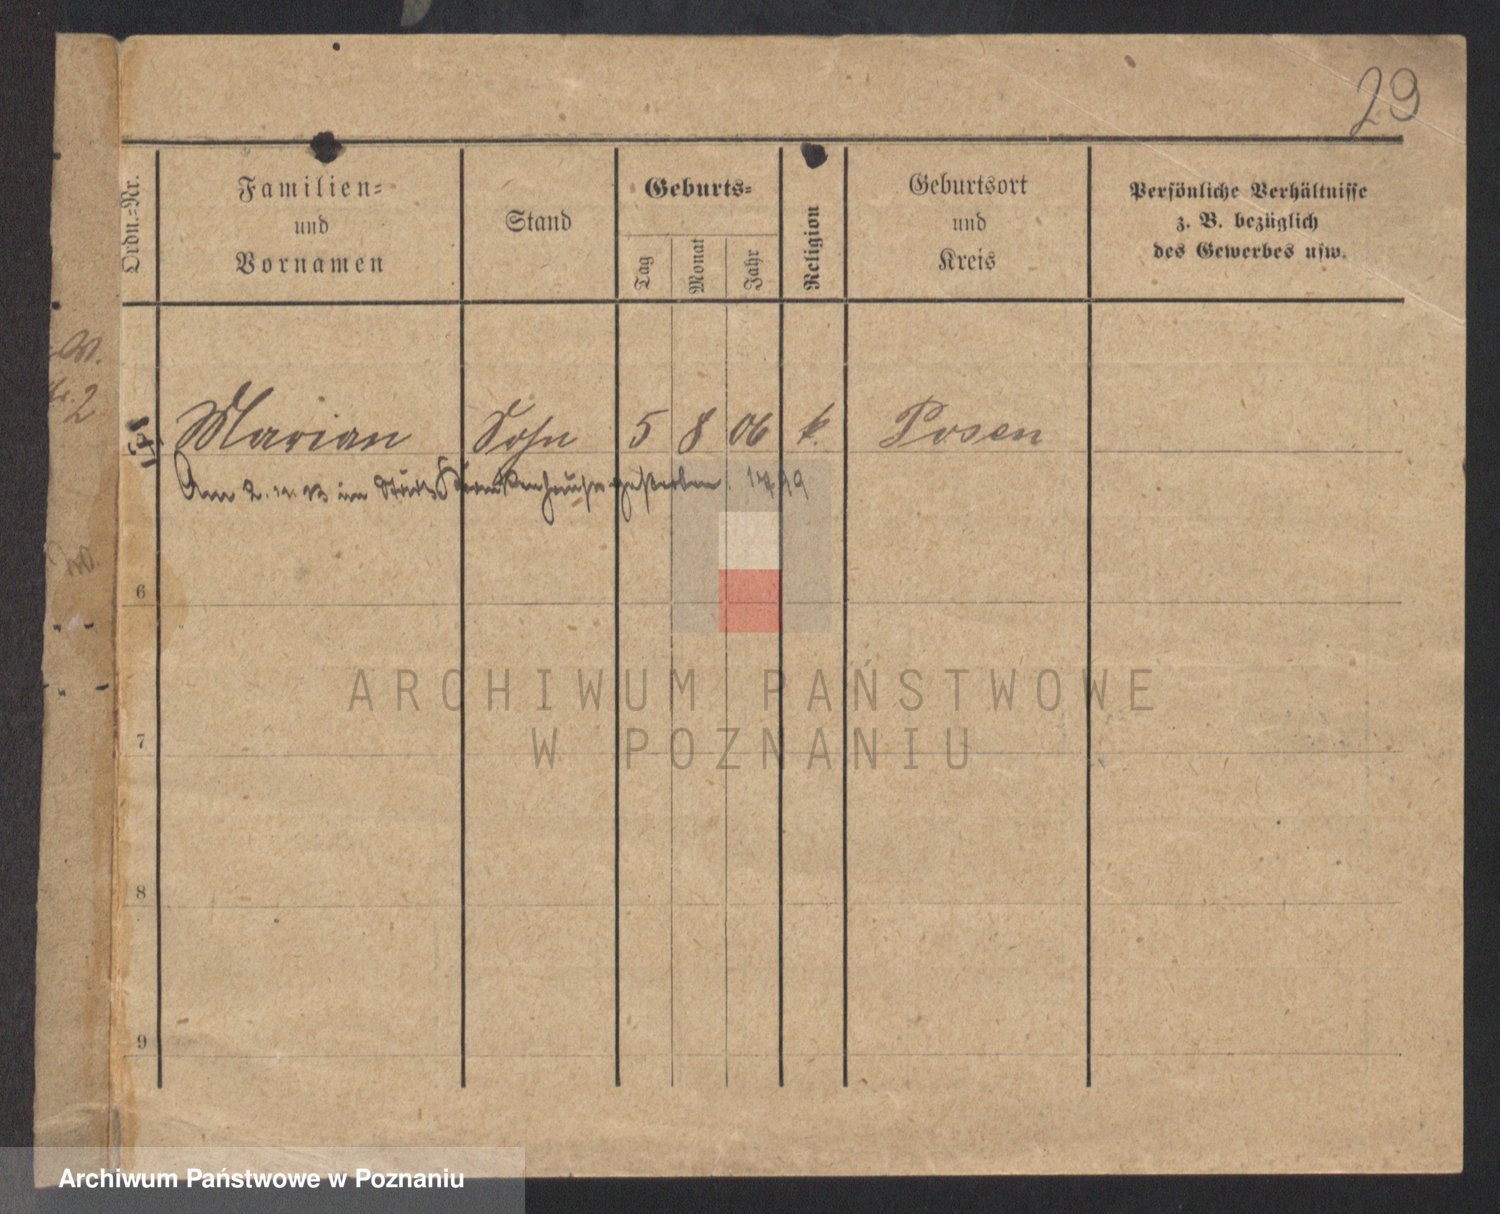 29
Ordn.-Nr.
Familien-
und
Vornamen
Stand
Geburts-
Tag
Monat
Jahr
Religion
Geburtsort
und
Kreis
Persönliche Verhältnisse
z. B. bezüglich
des Gewerbes usw.
W.
2
Marian Sohn 5 8 06 k. Posen
Am 2. im Städt. Krankenhause gestorben.
6
7
8
9
ARCHIWUM PAŃSTWOWE
W POZNANIU
Archiwum Państwowe w Poznaniu